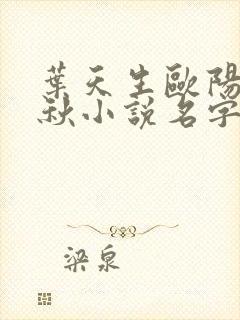 葉天生歐陽
秋小說名字
梁泉